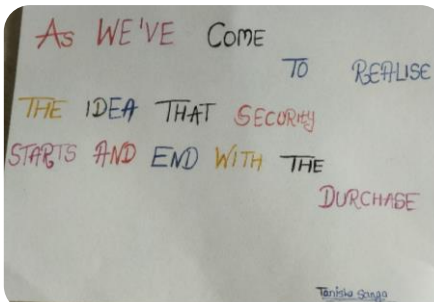 As WE'VE COME
TO REALISE
THE IDEA THAT SECURITY
STARTS AND END WITH THE
DURCHASE
Tanisha Sanga